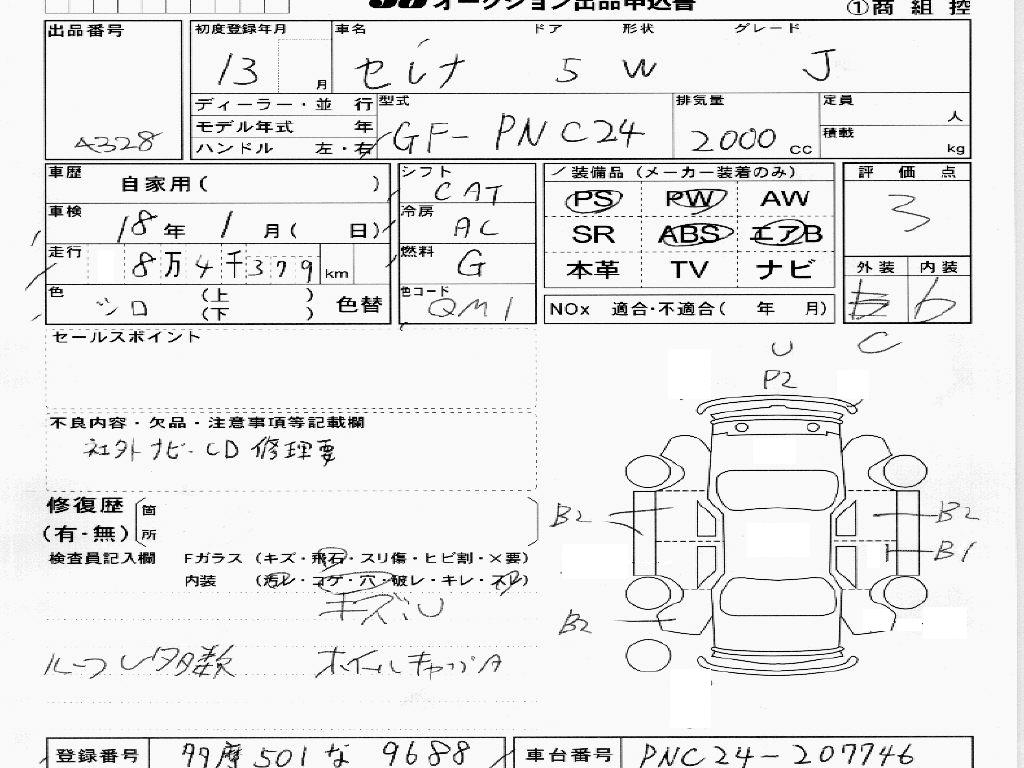 オークション出品申込書
①商 組 控
出品番号
A328
初度登録年月 車名 ドア 形状 グレード
13 月 セレナ 5 W J
ディーラー・並 行
モデル年式 年
ハンドル 左・右
型式 GF-PNC24
排気量 2000 cc
定員 人
積載 kg
車歴 自家用( )
車検 18年 1月( 日)
走行 8万4千379 km
色 シロ (上 ) (下 ) 色替
シフト CAT
冷房 AC
燃料 G
色コード QM1
装備品 (メーカー装着のみ)
PS PW AW
SR ABS エアB
本革 TV ナビ
NOx 適合・不適合( 年 月)
評 価 点
3
外装 内装
E D
C
セールスポイント
U
P2
不良内容・欠品・注意事項等記載欄
社外ナビ・CD 修理要
修復歴
(有・無) 箇所
B2 B2
B1
検査員記入欄 Fガラス (キズ・飛石・スリ傷・ヒビ割・×要)
内装 (汚レ・コゲ・穴・破レ・キレ・スレ)
キズ U
B2
ルーフ レタ多数 ホイルキャップA
登録番号 多摩501な 9688
車台番号 PNC24-207746